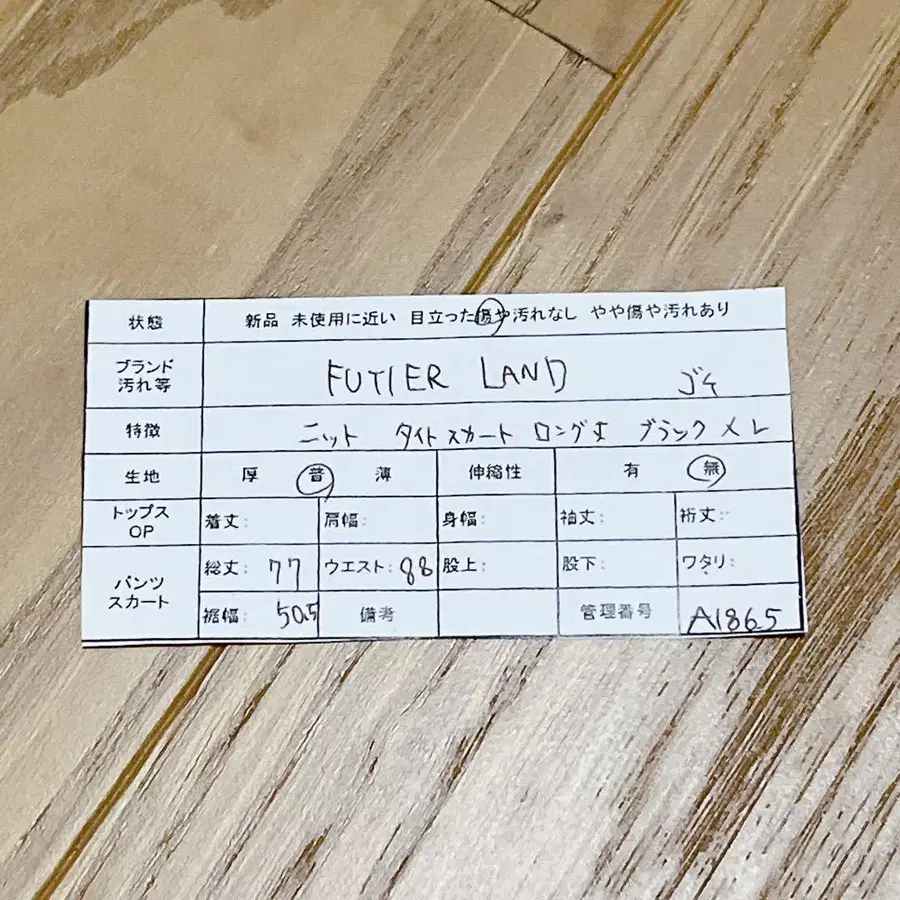 状態 新品 未使用に近い 目立った傷や汚れなし やや傷や汚れあり
ブランド 汚れ等 FUTIER LAND ゴム
特徴 ニット タイトスカート ロング丈 ブラック
生地 厚 普 薄 伸縮性 有 無
トップス OP 着丈: 肩幅: 身幅: 袖丈: 裄丈:
パンツ スカート 総丈: 77 ウエスト: 88 股上: 股下: ワタリ:
裾幅: 50.5 備考 管理番号 A1865